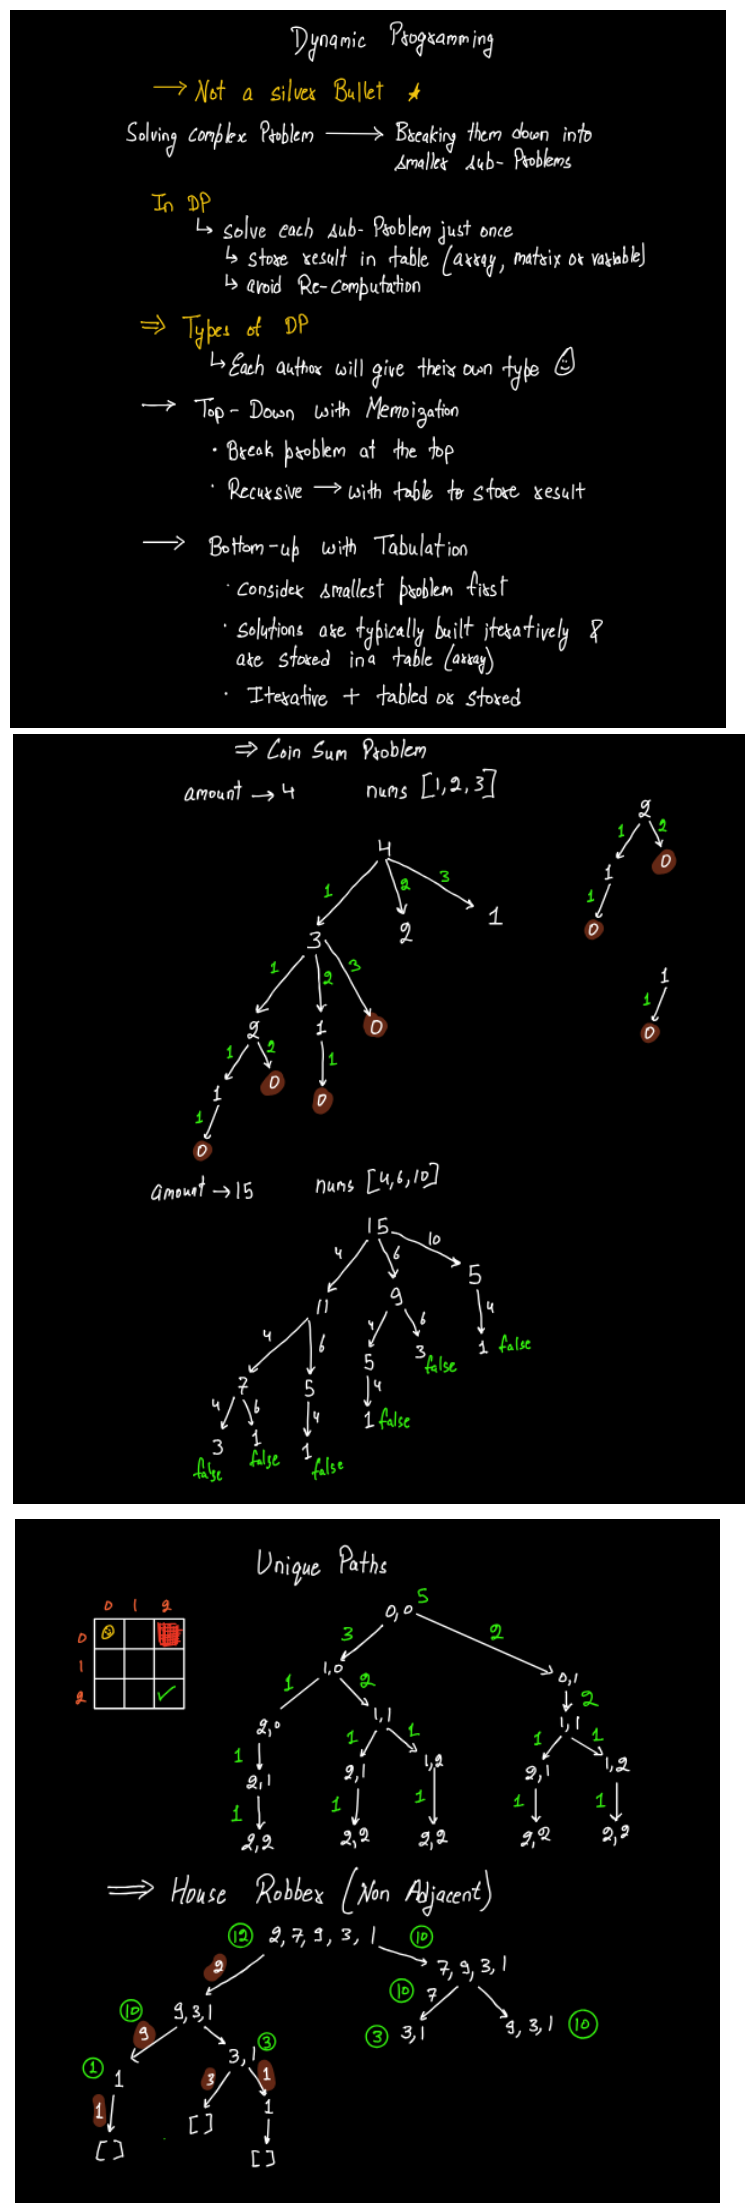 Dynamic Programming
→ Not a silver Bullet ★
Solving complex Problem → Breaking them down into
smaller sub-Problems
In DP
↳ solve each sub-Problem just once
↳ store result in table (array, matrix or variable)
↳ avoid Re-computation
⇒ Types of DP
↳ Each author will give their own type ☺
→ Top-Down with Memoization
· Break problem at the top
· Recursive → with table to store result
→ Bottom-up with Tabulation
· consider smallest problem first
· solutions are typically built iteratively &
are stored in a table (array)
· Iterative + tabled or stored
⇒ Coin Sum Problem
amount → 4 nums [1,2,3]
4 2
1 2 3 1 2
3 2 1 1 0
1 2 3 1
2 1 0 0
1 2 1 1
1 0 0 1
1 0
0
amount → 15 nums [4,6,10]
15
4 6 10
11 9 5
4 6 4 6 4
7 5 5 3 false 1 false
4 6 4 4
3 1 1 1 false
false false false
Unique Paths
0 1 2
0
1
2 ✓
0,0 5
3 2
1,0 0,1
1 2 2
2,0 1,1 1,1
1 1 1 1 1
2,1 2,1 1,2 2,1 1,2
1 1 1 1 1
2,2 2,2 2,2 2,2 2,2
⇒ House Robber (Non Adjacent)
12 2,7,9,3,1 10
2 7,9,3,1
10 9,3,1 10 7
9 3 3,1 9,3,1 10
1 3,1 3
1 3 1
1 [] 1
[] []